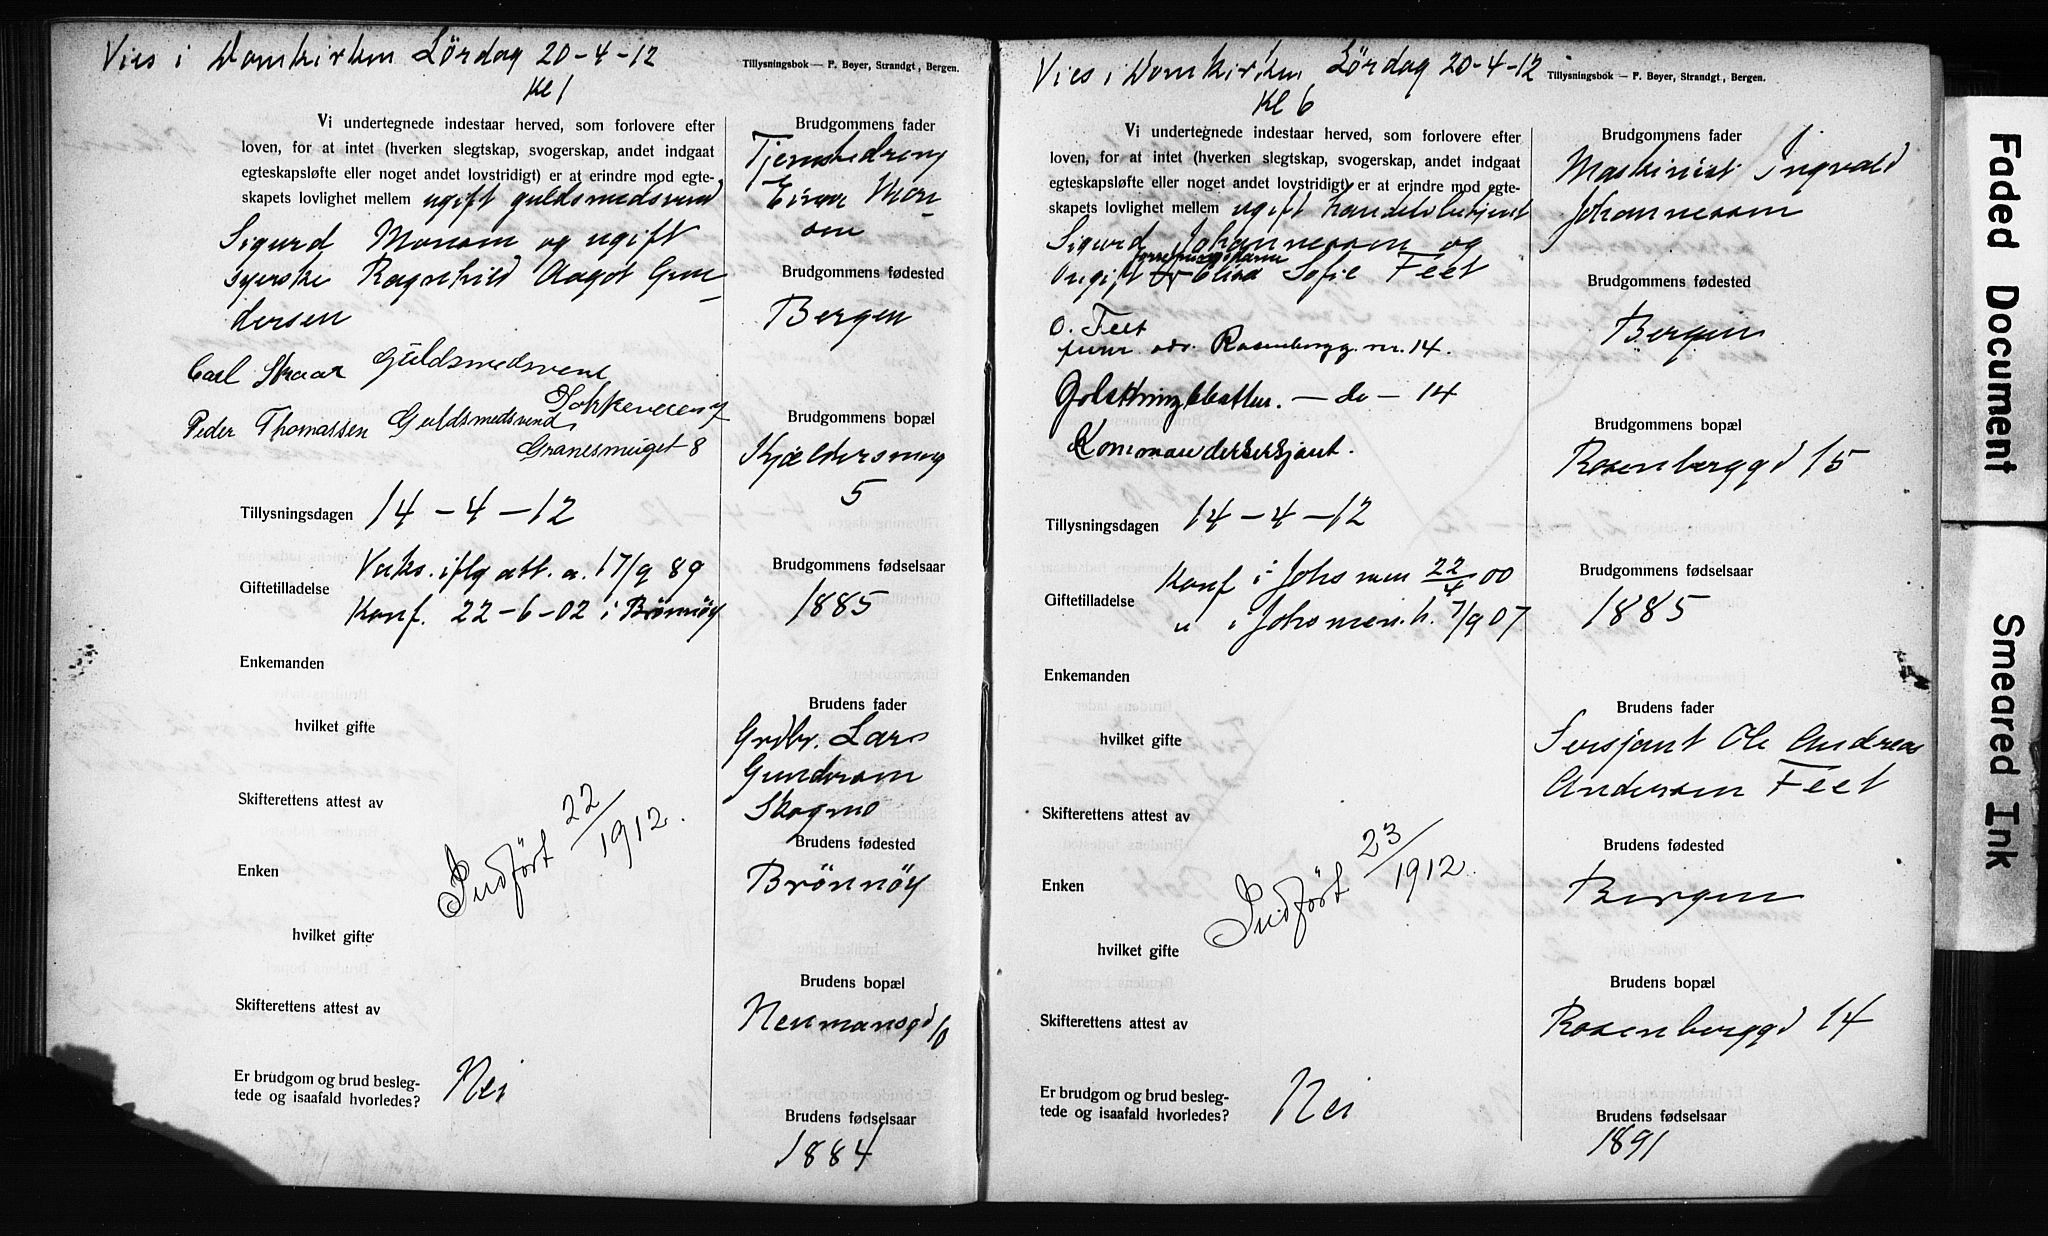 Vies i Domkirken Lördag 20-4-12
Kl 1
Tillysningsbok — F. Beyer, Strandgt, Bergen.
Vi undertegnede indestaar herved, som forlovere efter
loven, for at intet (hverken slegtskap, svogerskap, andet indgaat
egteskapsløfte eller noget andet lovstridigt) er at erindre mod egte-
skapets lovlighet mellem ugift guldsmedsvend
Sigurd Monsom og ugift
syerske Ragnhild Aagot Gun
dersen
Carl Straar Guldsmedsvend
Peder Thomassen Guldsmedsvend
Granesmuget 8
Tillysningsdagen 14-4-12
Giftetilladelse
Vaks. iflg att. a. 17/9 89
Konf. 22-6-02 i Brönnöy
Enkemanden
hvilket gifte
Skifterettens attest av
Indført 22/1912.
Enken
hvilket gifte
Skifterettens attest av
Er brudgom og brud besleg-
tede og isaafald hvorledes? Nei
Brudgommens fader
Mon
som
Brudgommens fødested
Bergen
Brudgommens bopæl
Kjældersmug
5
Brudgommens fødselsaar
1885
Brudens fader
Grdbr. Lars
Gundersom
Skogmo
Brudens fødested
Brönnöy
Brudens bopæl
Neumansgd 10
Brudens fødselsaar
1884
Vies i Domkirken Lördag 20-4-12
Kl 6
Tillysningsbok — F. Beyer, Strandgt, Bergen.
Vi undertegnede indestaar herved, som forlovere efter
loven, for at intet (hverken slegtskap, svogerskap, andet indgaat
egteskapsløfte eller noget andet lovstridigt) er at erindre mod egte-
skapets lovlighet mellem ugift handelsbetjent
Sigurd Johannessom og
ugift Sofie Feet
O. Feet
adr. Rosenbergg. nr. 14.
— do — 14
Kommandersersjant.
Tillysningsdagen 14-4-12
Giftetilladelse
Konf i Johs men 22/4 00
" i Johs men. h. 7/9 07
Enkemanden
hvilket gifte
Skifterettens attest av
Indført 23/1912.
Enken
hvilket gifte
Skifterettens attest av
Er brudgom og brud besleg-
tede og isaafald hvorledes? Nei
Brudgommens fader
Maskinist Ingvald
Johannessom
Brudgommens fødested
Bergen
Brudgommens bopæl
Rosenberggd 15
Brudgommens fødselsaar
1885
Brudens fader
Sersjant Ole Andreas
Andersom Feet
Brudens fødested
Bergen
Brudens bopæl
Rosenberggd 14
Brudens fødselsaar
1891
Faded Document
Smeared Ink